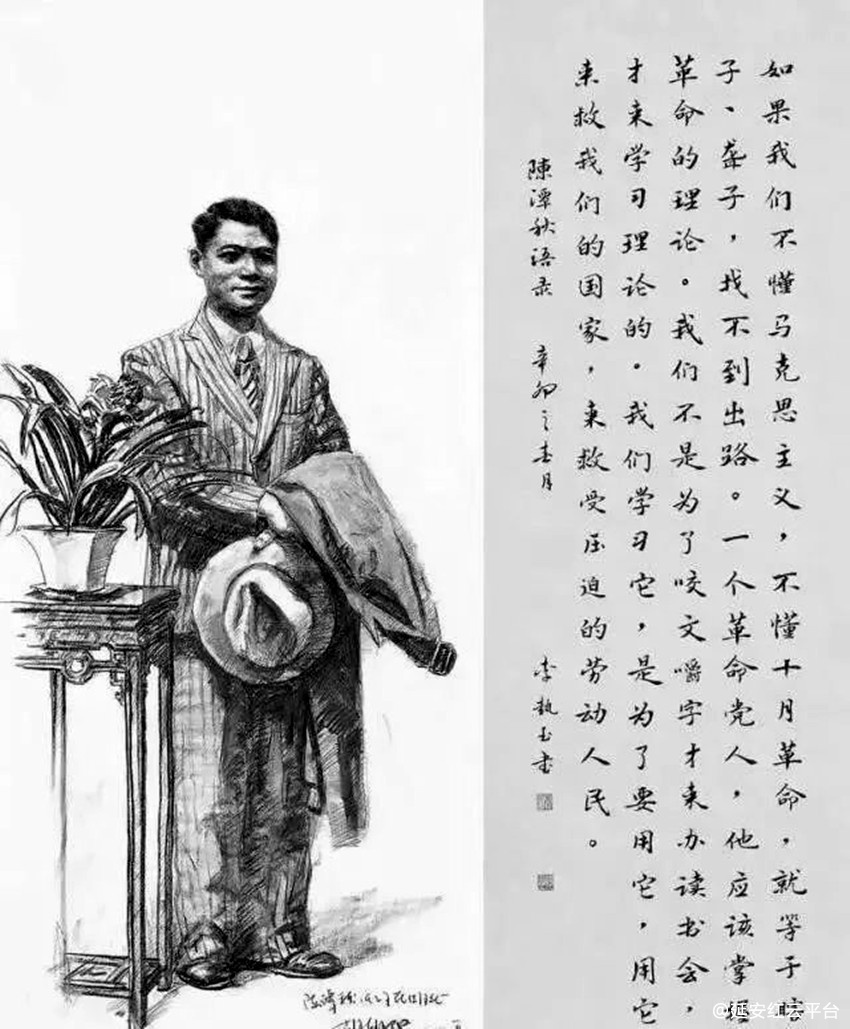 如果我们不懂马克思主义，不懂十月革命，就等于瞎
子、聋子，找不到出路。一个革命党人，他应该掌握
革命的理论。我们不是为了咬文嚼字才来办读书会，
才来学习理论的。我们学习它，是为了要用它，用它
来救我们的国家，来救受压迫的劳动人民。
陳潭秋语录 辛卯之春月 李执玉书
@延安红云平台